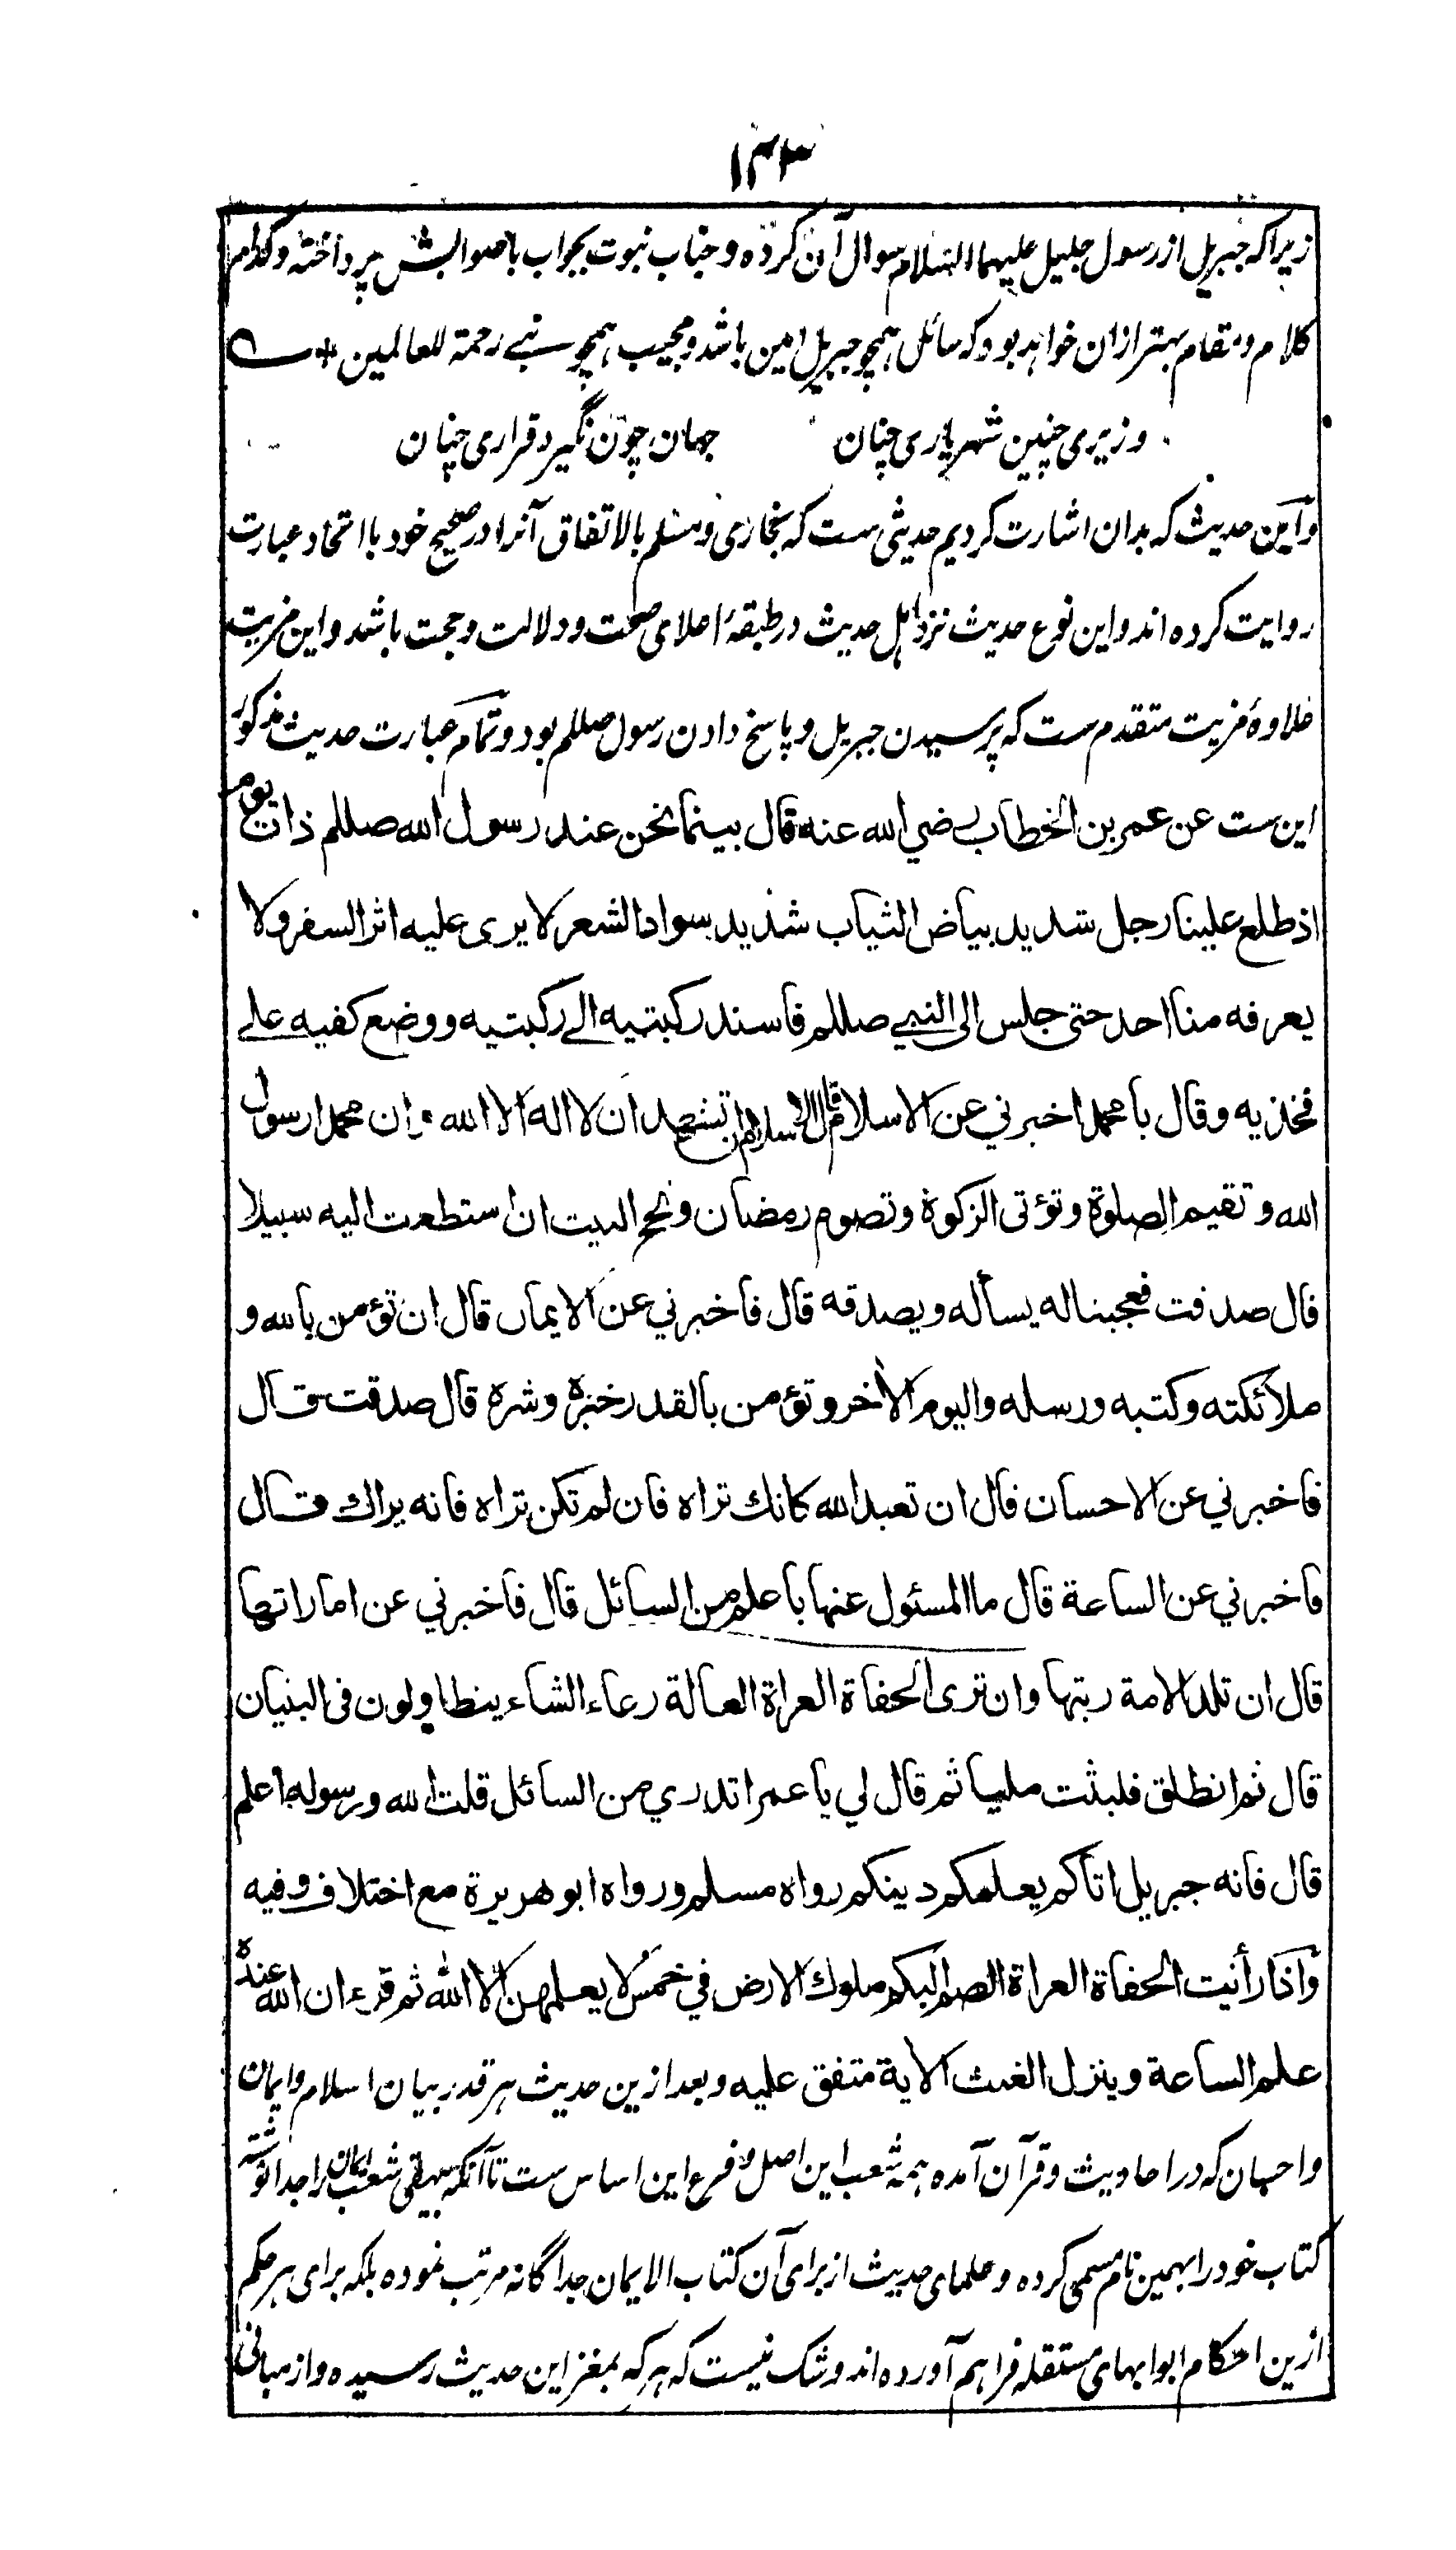 ۱۴۳
زیراکه جبریل از رسول جلیل علیهما السلام سوال آن کرده و جناب نبوت بجواب باصوابش پرداخته و کدام
کلام و مقام بهتر ازان خواهد بود که سائل همچو جبریل امین باشد و مجیب همچو نبے رحمة للعالمین +
وزیری چنین شهریاری چنان جهان چون نگیرد قراری چنان
واین حدیث که بدان اشارت کردیم حدیثی ست که بخاری و مسلم بالاتفاق آنرا در صحیح خود با اتحاد عبارت
روایت کرده اند و این نوع حدیث نزد اهل حدیث در طبقهٔ اعلای صحت و دلالت و حجت باشد و این مزیت
علاوهٔ مزیت متقدم ست که پرسیدن جبریل و پاسخ دادن رسول صللم بود و تمام عبارت حدیث مذکور
این ست عن عمر بن الخطاب رضي الله عنه قال بينما نحن عند رسول الله صللم ذات يوم
اذ طلع علينا رجل شديد بياض الثياب شديد سواد الشعر لا يرى عليه اثر السفر ولا
يعرفه منا احد حتى جلس الى النبي صللم فاسند ركبتيه الے ركبتيه ووضع كفيه علے
فخذيه وقال يا محمد اخبرني عن الاسلام قال الاسلام ان تشهد ان لا اله الا الله وان محمدا رسول
الله و تقيم الصلوة وتؤتى الزكوة وتصوم رمضان وتحج البيت ان استطعت اليه سبيلا
قال صدقت فعجبنا له يسأله ويصدقه قال فاخبرني عن الايمان قال ان تؤمن بالله و
ملائكته وكتبه ورسله واليوم الآخر وتؤمن بالقدر خيره وشره قال صدقت قال
فاخبرني عن الاحسان قال ان تعبد الله كانك تراه فان لم تكن تراه فانه يراك قال
فاخبرني عن الساعة قال ما المسئول عنها باعلم من السائل قال فاخبرني عن اماراتها
قال ان تلد الامة ربتها وان ترى الحفاة العراة العالة رعاء الشاء يتطاولون فى البنيان
قال ثم انطلق فلبثت مليا ثم قال لي يا عمر اتدري من السائل قلت الله ورسوله اعلم
قال فانه جبريل اتاكم يعلمكم دينكم رواه مسلم ورواه ابو هريرة مع اختلاف وفيه
واذا رأيت الحفاة العراة الصم البكم ملوك الارض في خمس لا يعلمهن الا الله ثم قرء ان الله عنده
علم الساعة وينزل الغيث الآية متفق عليه و بعد ازین حدیث هر قدر بیان اسلام و ایمان
و احسان که در احادیث و قرآن آمده همه شعب این اصل و فرع این اساس ست تا آنکه بیهقی شعب ایمان را جدا نوشته
کتاب خود را بهمین نام مسمی کرده و علمای حدیث از برای آن کتاب الایمان جداگانه مرتب نموده بلکه برای هر حکم
ازین احکام ابوابهای مستقله فراهم آورده اند و شک نیست که هر که بمغز این حدیث رسیده و از مبانی